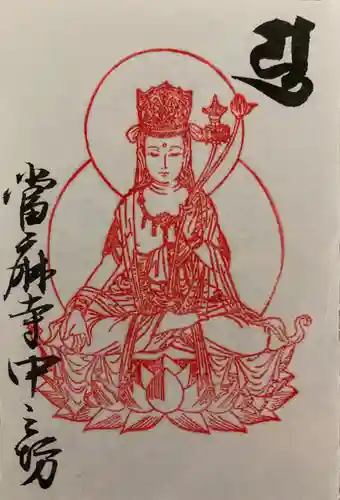 當麻寺中之坊